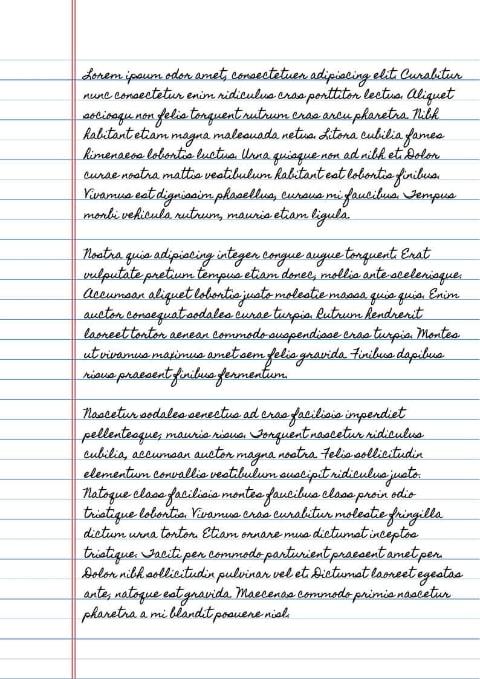 Lorem ipsum odor amet, consectetuer adipiscing elit. Curabitur
nunc consectetur enim ridiculus cras porttitor lectus. Aliquet
sociosqu non felis torquent rutrum cras arcu pharetra. Nibh
habitant etiam magna malesuada netus. Litora cubilia fames
himenaeos lobortis luctus. Urna quisque non ad nibh et. Dolor
curae nostra mattis vestibulum habitant est lobortis finibus.
Vivamus est dignissim phasellus, cursus mi faucibus. Tempus
morbi vehicula rutrum, mauris etiam ligula.
Nostra quis adipiscing integer congue augue torquent. Erat
vulputate pretium tempus etiam donec, mollis ante scelerisque.
Accumsan aliquet lobortis justo molestie massa quis quis. Enim
auctor consequat sodales curae turpis. Rutrum hendrerit
laoreet tortor aenean commodo suspendisse cras turpis. Montes
ut vivamus maximus amet sem felis gravida. Finibus dapibus
risus praesent finibus fermentum.
Nascetur sodales senectus ad cras facilisis imperdiet
pellentesque; mauris risus. Torquent nascetur ridiculus
cubilia, accumsan auctor magna nostra. Felis sollicitudin
elementum convallis vestibulum suscipit ridiculus justo.
Natoque class facilisis montes faucibus class proin odio
tristique lobortis. Vivamus cras curabitur molestie fringilla
dictum urna tortor. Etiam ornare mus dictumst inceptos
tristique. Taciti per commodo parturient praesent amet per.
Dolor nibh sollicitudin pulvinar vel et. Dictumst laoreet egestas
ante; natoque est gravida. Maecenas commodo primis nascetur
pharetra a mi blandit posuere nisl.